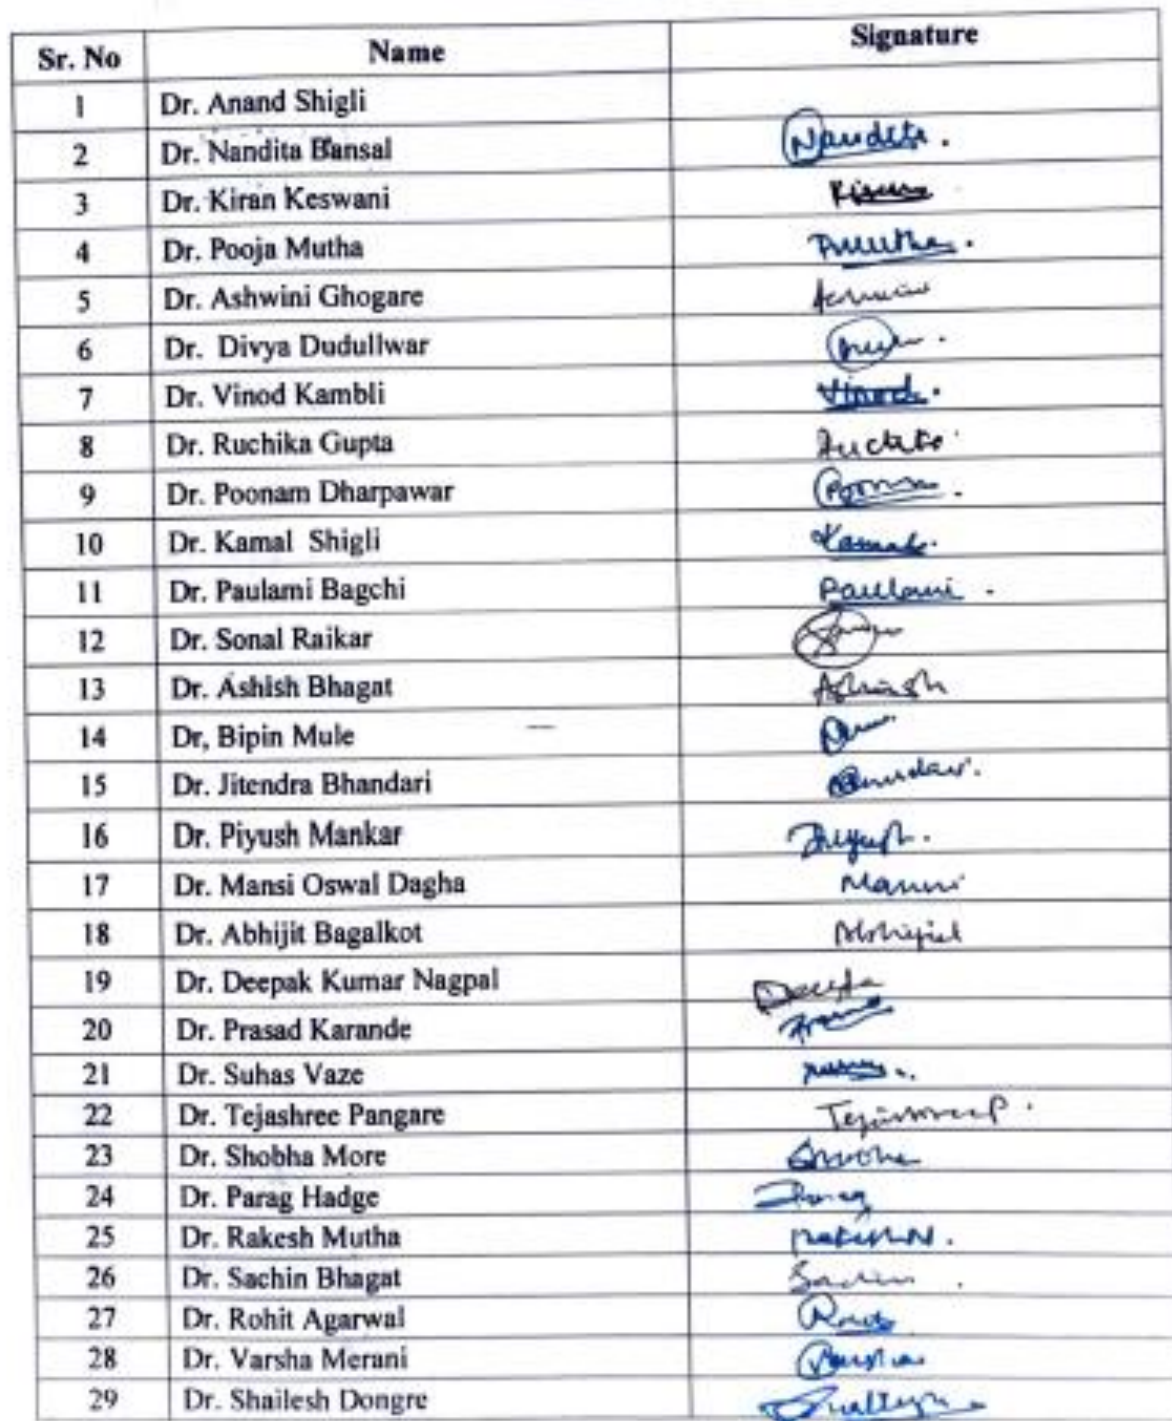 Sr. No Name Signature
1 Dr. Anand Shigli
2 Dr. Nandita Bansal Nandita.
3 Dr. Kiran Keswani Kiran
4 Dr. Pooja Mutha PMutha.
5 Dr. Ashwini Ghogare
6 Dr. Divya Dudullwar
7 Dr. Vinod Kambli Vinod.
8 Dr. Ruchika Gupta
9 Dr. Poonam Dharpawar
10 Dr. Kamal Shigli Kamal.
11 Dr. Paulami Bagchi Paulami.
12 Dr. Sonal Raikar
13 Dr. Ashish Bhagat Ashish
14 Dr, Bipin Mule
15 Dr. Jitendra Bhandari
16 Dr. Piyush Mankar Piyush.
17 Dr. Mansi Oswal Dagha Mansi
18 Dr. Abhijit Bagalkot Abhijit
19 Dr. Deepak Kumar Nagpal
20 Dr. Prasad Karande
21 Dr. Suhas Vaze
22 Dr. Tejashree Pangare TejashreeP.
23 Dr. Shobha More
24 Dr. Parag Hadge Parag
25 Dr. Rakesh Mutha
26 Dr. Sachin Bhagat Sachin.
27 Dr. Rohit Agarwal
28 Dr. Varsha Merani
29 Dr. Shailesh Dongre